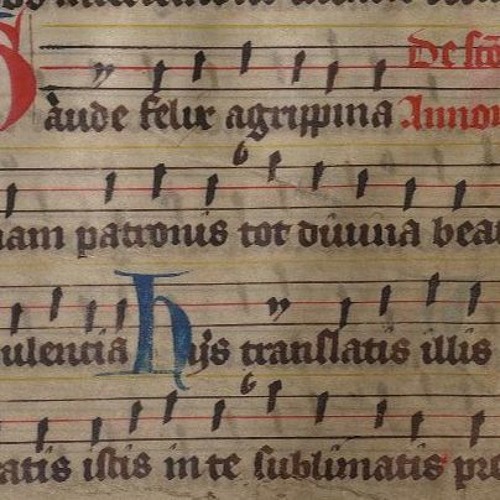 Gaude felix agrippina De sct
Annon
nam patronis tot diuina bea
ulencia hijs translatis illis
atis istis in te sublimatis pro